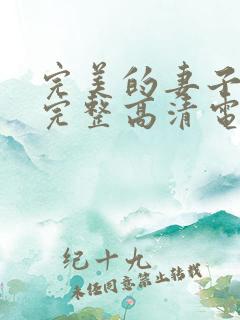 完美的妻子
完整高清电
纪十九
未经同意禁止转载